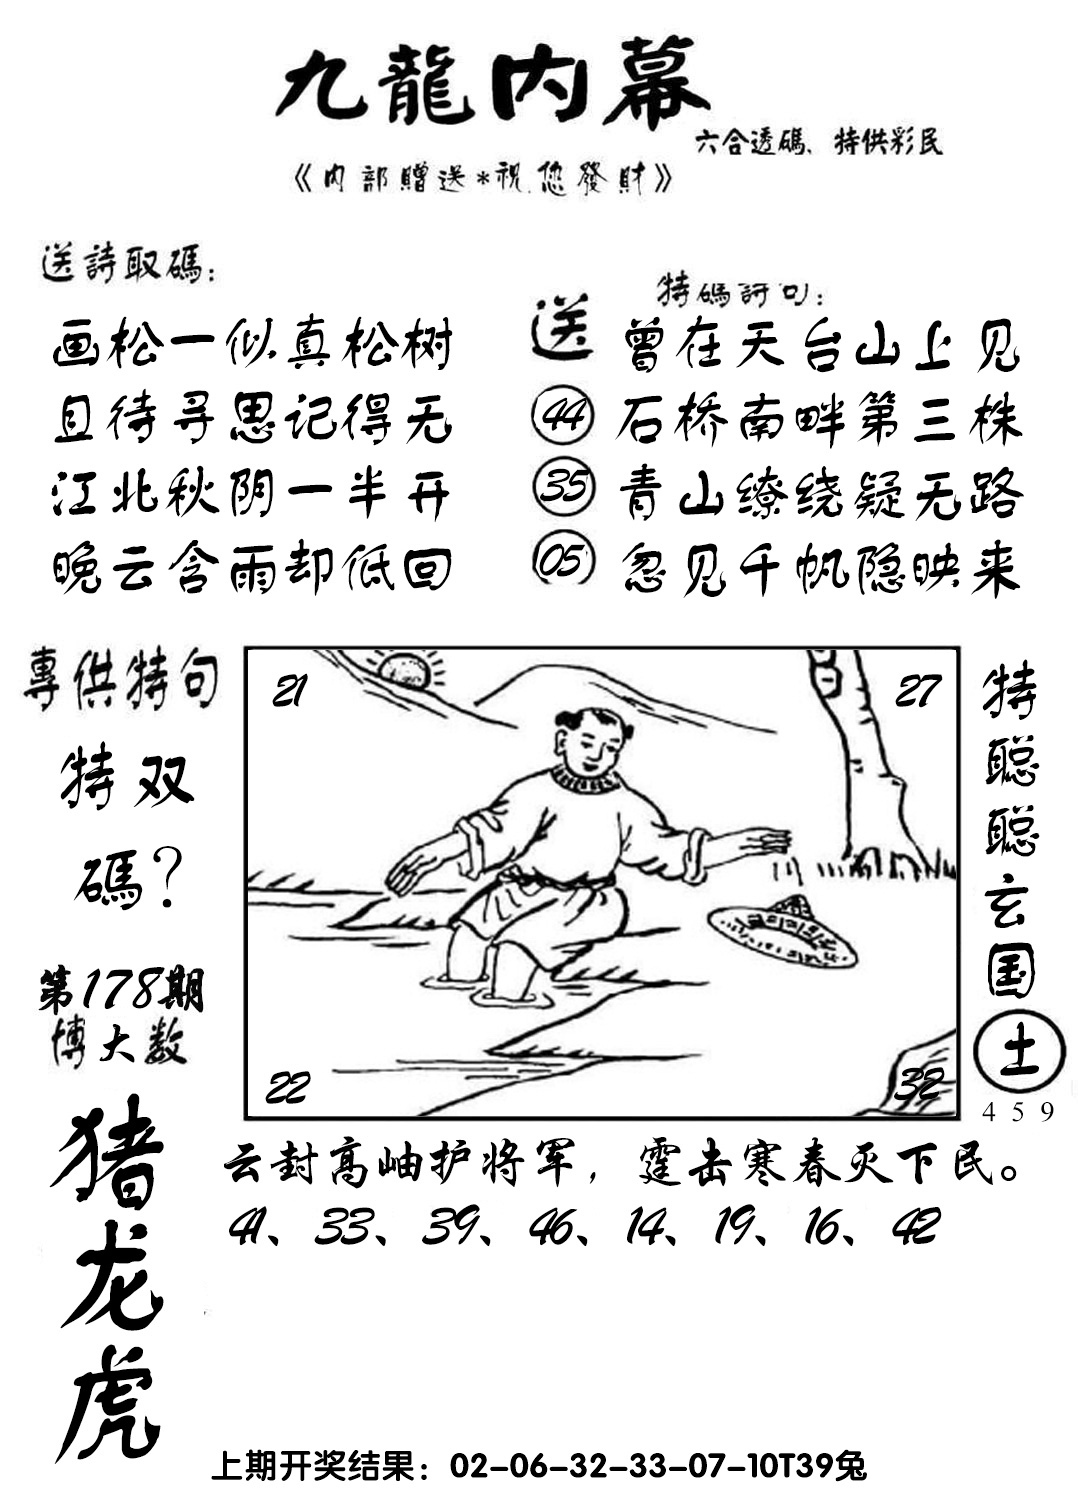 九龍内幕
六合透碼、特供彩民
《内部赠送*祝您發財》
送詩取碼：
特碼詩句：
画松一似真松树
且待寻思记得无
江北秋阴一半开
晚云含雨却低回
送
44
35
05
曾在天台山上见
石桥南畔第三株
青山缭绕疑无路
忽见千帆隐映来
專供特句
特双
碼？
第178期
博大数
猪
龙
虎
21
27
22
32
特聪聪玄国
土
459
云封高岫护将军，霆击寒春灭下民。
41、33、39、46、14、19、16、42
上期开奖结果：02-06-32-33-07-10T39兔